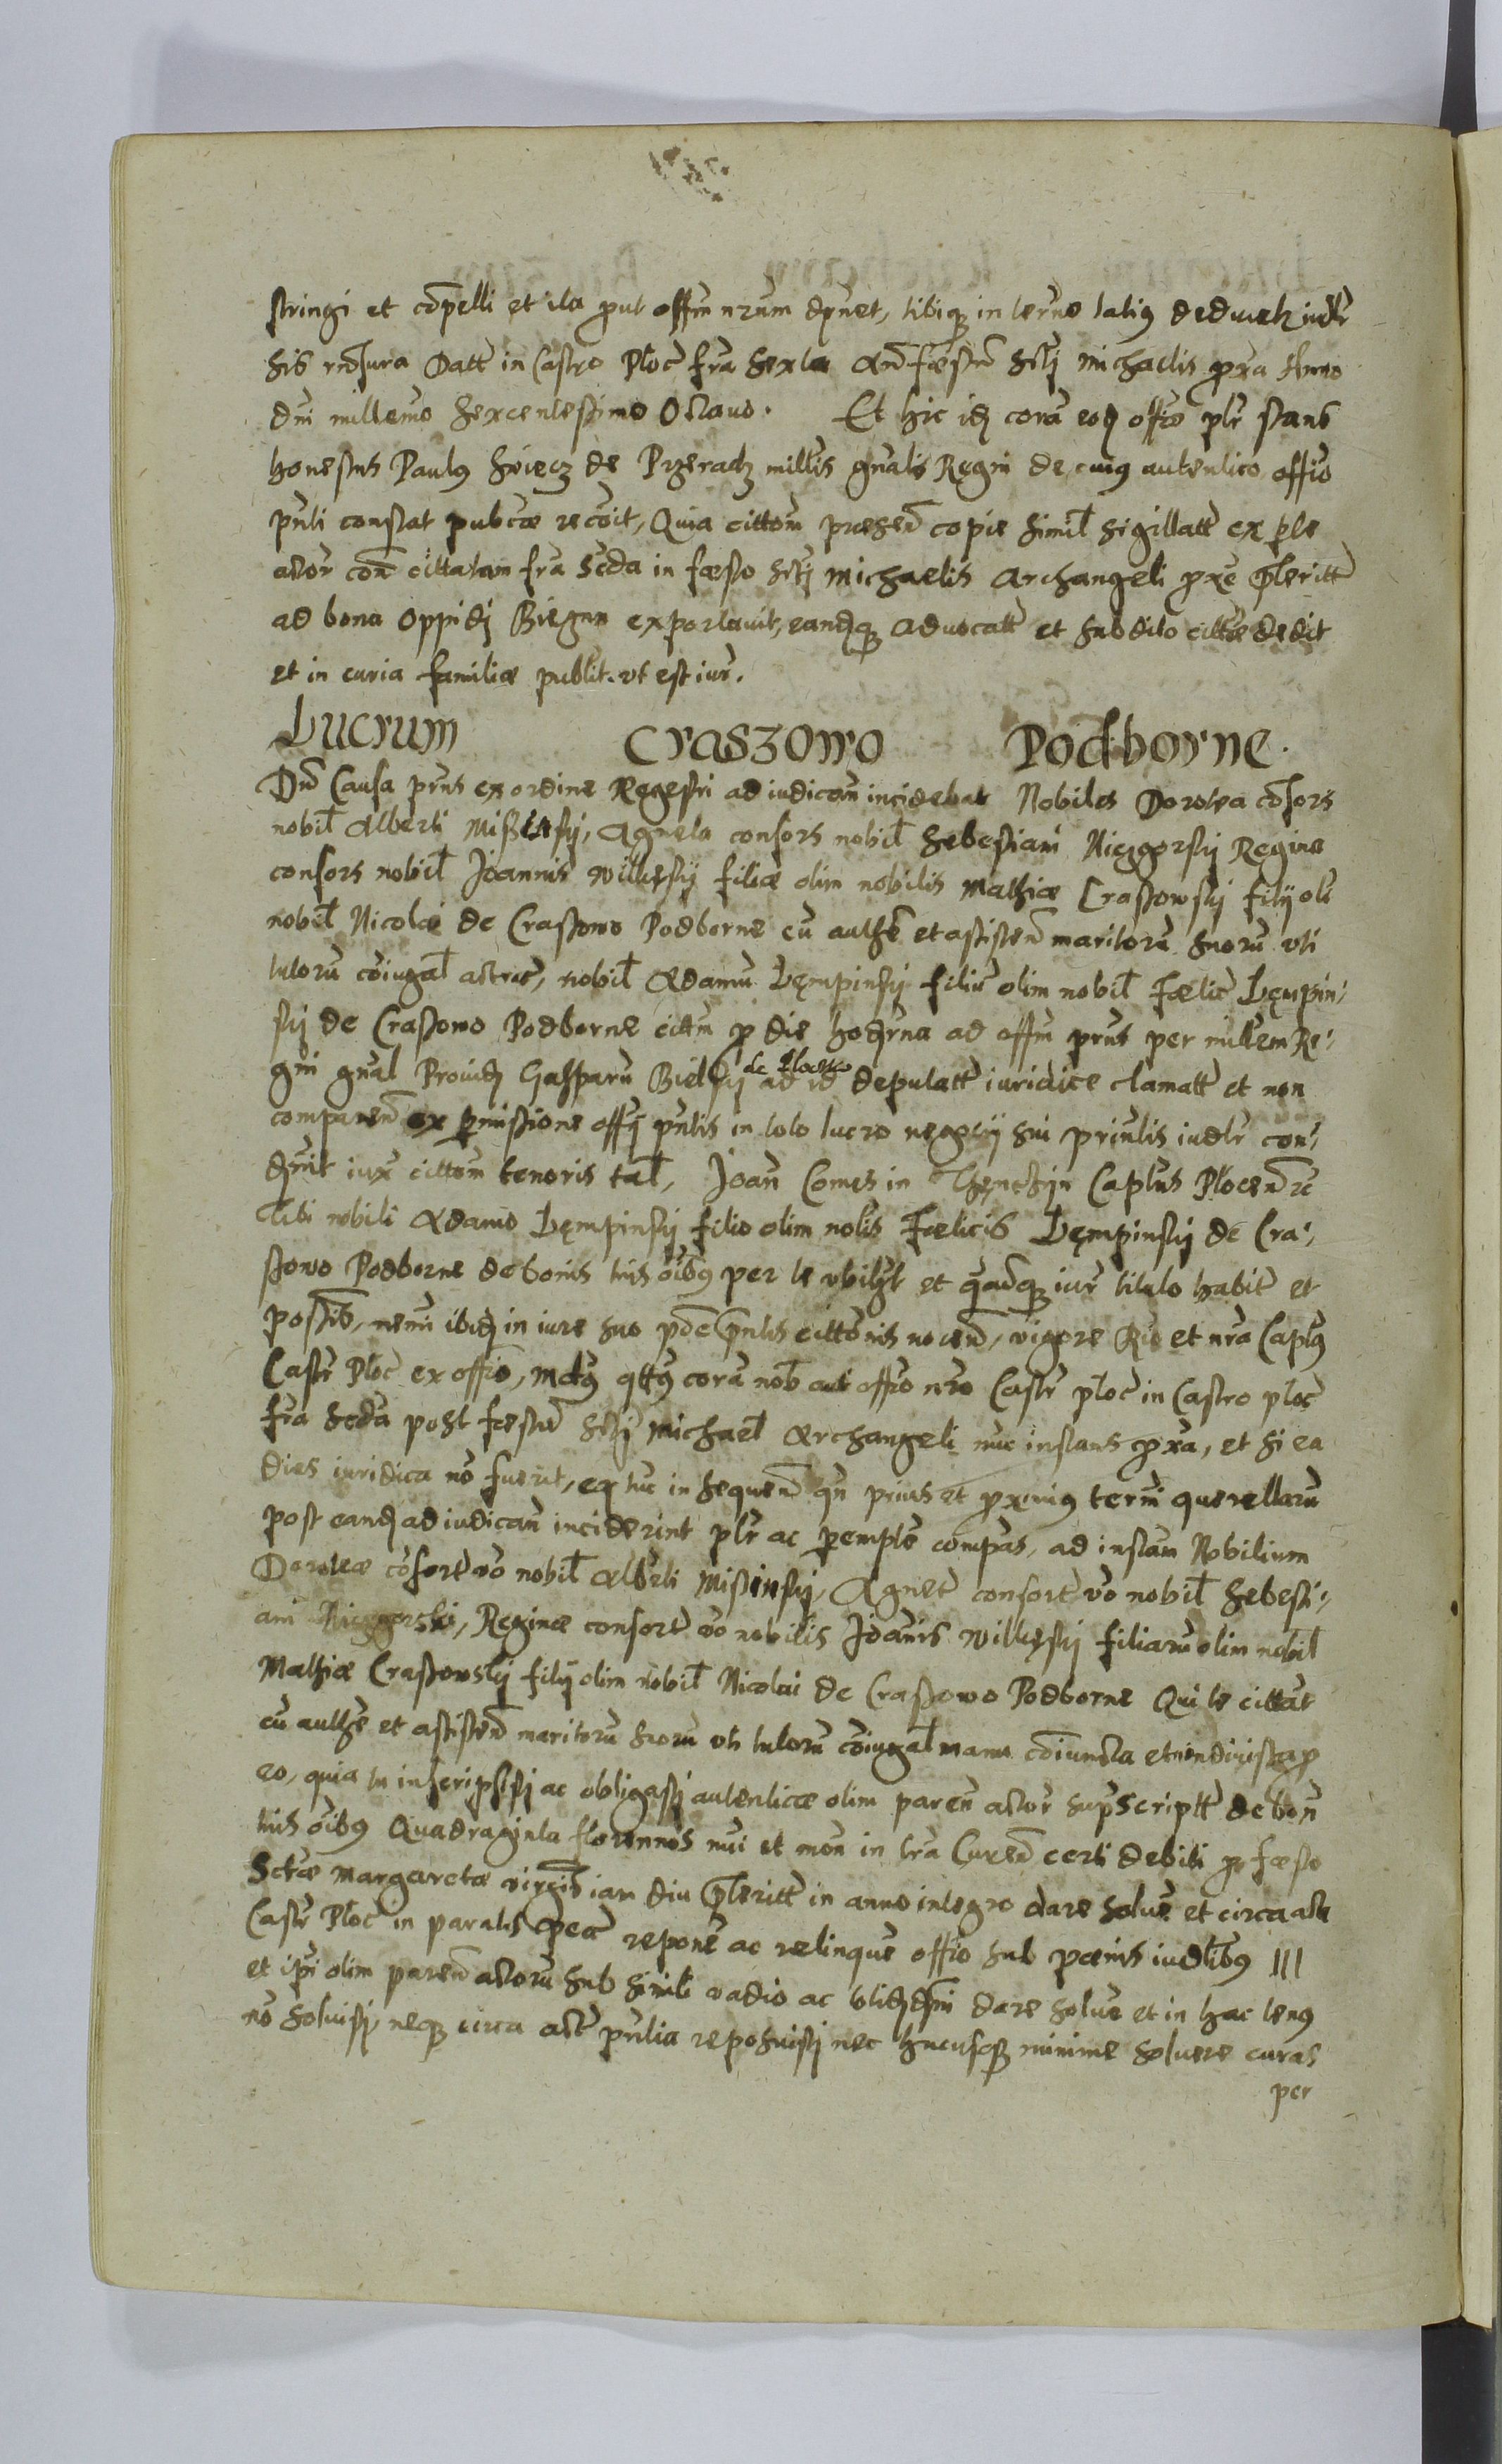 stringi et cōpelli et ita ꝓut offm nrum dpnet, tibiqꝫ in termo latiq deducetr iudlr
sis rndsura Datt in Castro Ploc̄ fra sexta An̄ fæstū Sctj Michaelis ꝓxa Anno
dni millemo sexcentessimo Octauo. Et hic idꝫ corā eodꝫ offio plr stans
honestus Paulq Swięcz de Przeradz millis gnalis Regni de cuiq autentico offio
pnti constat publcæ recōit, Quia cittom præsen̄ copiæ simil sigillatt ex pte
actor con̄ cittatam fra Scda in fæsto Sctj Michaelis Archangeli ꝓxe pteritt
ad bona oppidj Biegun exportauit, eandqꝫ aduocatt et subdito cittæ dedit
et in curia familiæ publit. vt est iur.
Lucrum Craszowo Podborne.
Dū Causa prns ex ordine Regestri ad iudicām incidebat Nobiles Dorotea cōsors
nobil Alberti Missinsij, Agneta consors nobil Sebestiani Niezgorsij Regina
consors nobil Joannis Willięsij filiæ olim nobilis Mathiæ Crassowsij filij oli
nobil Nicolai de Crassowo Podborne cū authē et assisten̄ maritorū suorū vti
tutorū cōiugal actrices, nobil Adamū Lęmpinsij filiū olim nobil Fælic Lęmpin,
sij de Crassowo Podborne cittm ꝓ die hodierna ad offm prns per millem Re,
gni gnal Prouidꝫ Gasparū Bielsij de Ploczko ad id deputatt iuridice clamatt et non
comparen̄ ex pmissione offij pntis in toto lucro negotij sui prinlis iudlr con,
dnit iux cittom tenoris tal, Joan̄ Comes in Thęnczijn Caplns Plocen̄ ꝛc
Tibi nobili Adamo Lęmpinsij filio olim nolis Fœlicis Lęmpinsij de Cra,
ssowo Podborne de bonis tuis oībq per te vbilzt et quouqꝫ iur titulo habit et
possīs, nemi ibidꝫ in iure suo pde pntis cittonis nocen̄, vigore Rio et nra Caplq
Castr Ploc̄ ex offio, Mdtq qttq corā nob aut offio nro Castr ploc̄ in Castro ploc̄
fra Scda post fæstū Sctj Michael Archangeli nuc instans ꝓxa, et si ea
dies iuridica nō fuerit, ex tūc in sequen̄ qn prius et ꝓximiq termi querellarū
post eandꝫ ad iudicam inciderint plr ac pemptē compas, ad instām Nobilium
Doroteæ cōsort vō nobil Alberti Missinsij, Agnet consort vō nobil Sebesti,
ani Niezgorski, Reginæ consort vō nobilis Joānis Willięsij filiarū olim nobil
Mathiæ Crassowsij filij olim nobil Nicolai de Crassowo Podborne Qui te cittāt
cū authē et assisten̄ maritorū suorū vti tutorū cōiugal manu cōiuncta et indiuisa ꝓ
eo, quia tu inscripsisti ac obligasti autenticæ olim paren̄ actor supscriptt de bon̄
tuis oībq Quadraginta florennos nui et mon in tra Curen̄ certi debiti ꝓ fæsto
Sctæ Margaretæ virgīs iam diu pteritt in anno integro dare soluē et circa acta
Castr Ploc̄ in paratis pec̄ reponē ac relinque offio sub pœnis iudlībq III
et ipi olim paren̄ actorū sub simili vadio ac dare soluē et in hac tenq
nō soluisti, neqꝫ circa act pntia reposuisti nec hucusqꝫ minime soluere curas
per